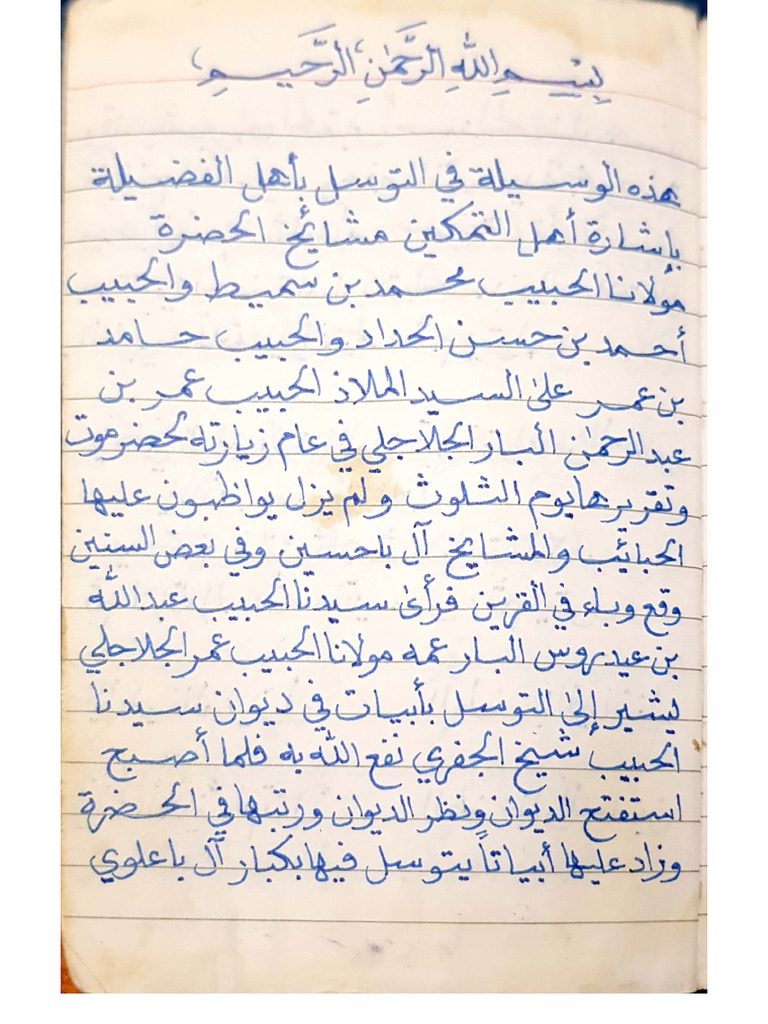 بِسْمِ اللهِ الرَّحْمٰنِ الرَّحِيمِ
هذه الوسيلة في التوسل بأهل الفضيلة
بإشارة أهل التمكين مشائخ الحضرة
مولانا الحبيب محمد بن سميط والحبيب
أحمد بن حسن الحداد والحبيب حامد
بن عمر علىٰ السيد الملاذ الحبيب عمر بن
عبدالرحمٰن البار الجلاجلي في عام زيارته لحضرموت
وتقريرها يوم الثلوث ولم يزل يواظبون عليها
الحبائب والمشايخ آل باحسين وفي بعض السنين
وقع وباء في القرين فرأىٰ سيدنا الحبيب عبدالله
بن عيدروس البار عمه مولانا الحبيب عمر الجلاجلي
يشير إلىٰ التوسل بأبيات في ديوان سيدنا
الحبيب شيخ الجفري نفع الله به فلما أصبح
استفتح الديوان ونظر الديوان ورتبها في الحضرة
وزاد عليها أبياتاً يتوسل فيها بكبار آل باعلوي